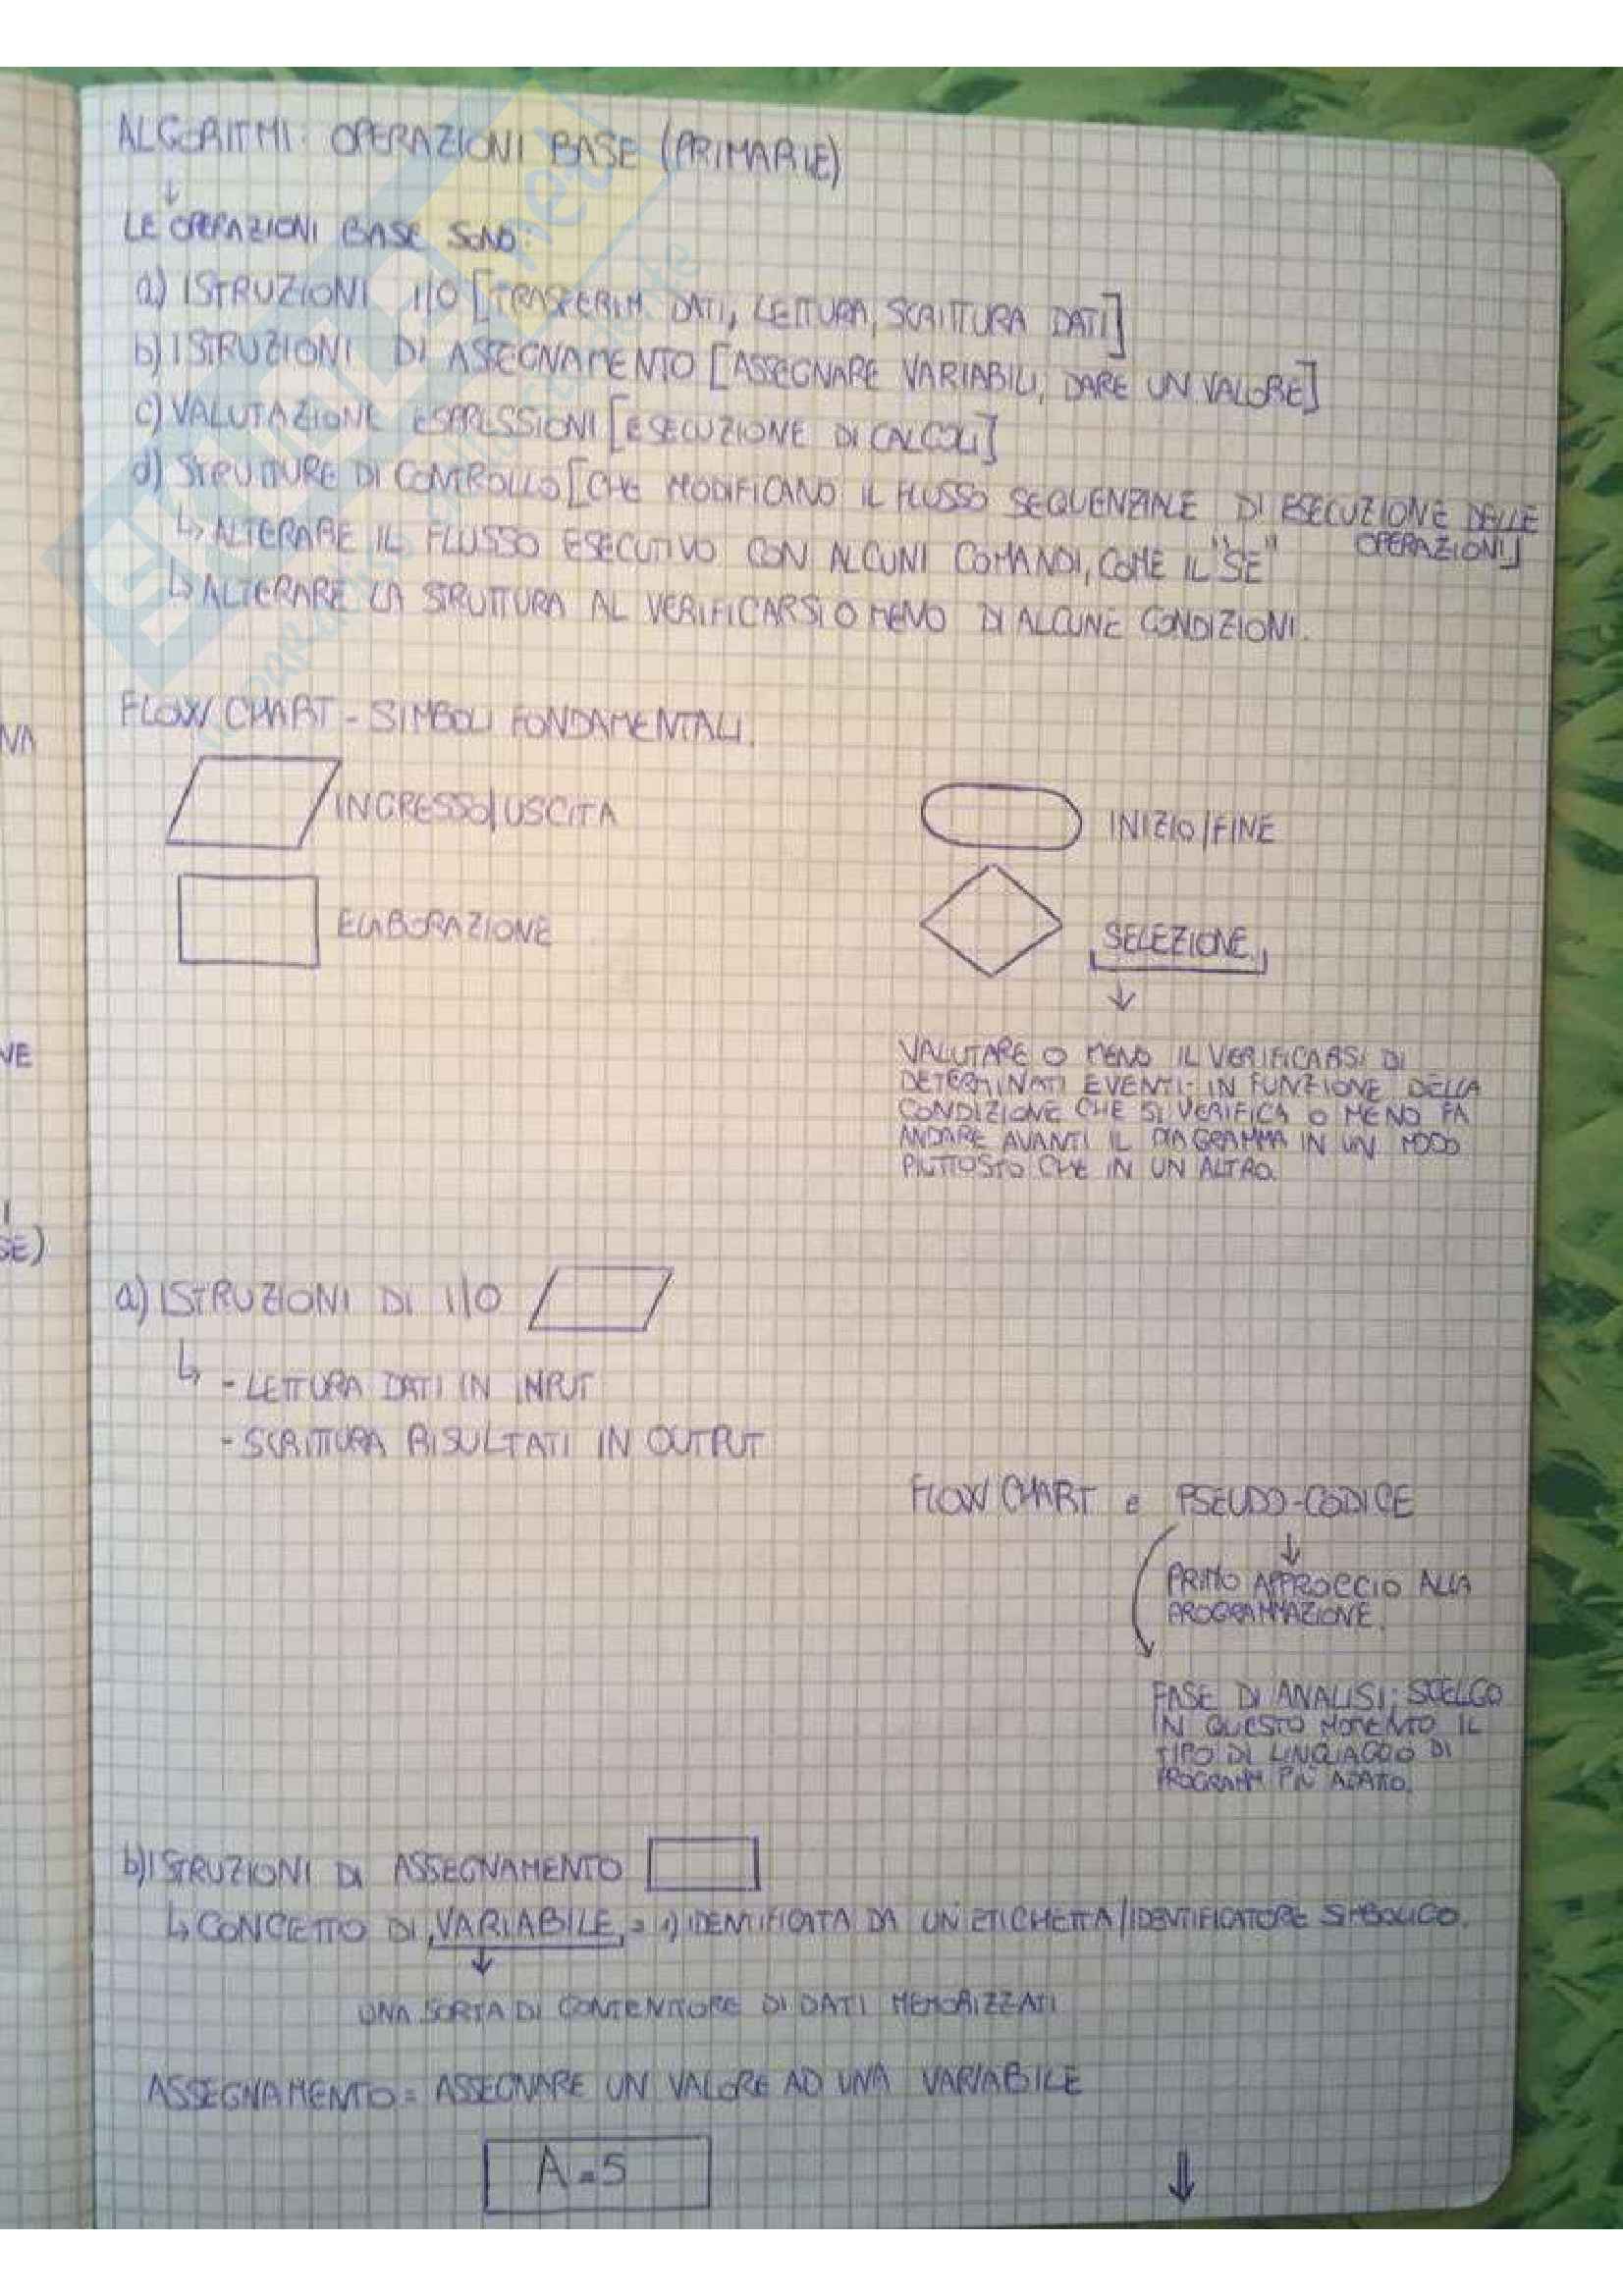 ALGORITMI: OPERAZIONI BASE (PRIMARIE)
↓
LE OPERAZIONI BASE SONO:
a) ISTRUZIONI I/O [TRASFERIM. DATI, LETTURA, SCRITTURA DATI]
b) ISTRUZIONI DI ASSEGNAMENTO [ASSEGNARE VARIABILI, DARE UN VALORE]
c) VALUTAZIONE ESPRESSIONI [ESECUZIONE DI CALCOLI]
d) STRUTTURE DI CONTROLLO [CHE MODIFICANO IL FLUSSO SEQUENZIALE DI ESECUZIONE DELLE
OPERAZIONI]
↳ ALTERARE IL FLUSSO ESECUTIVO CON ALCUNI COMANDI, COME IL "SE"
↳ ALTERARE LA STRUTTURA AL VERIFICARSI O MENO DI ALCUNE CONDIZIONI.
FLOW CHART - SIMBOLI FONDAMENTALI.
INGRESSO/USCITA
INIZIO/FINE
ELABORAZIONE
SELEZIONE
↓
VALUTARE O MENO IL VERIFICARSI DI
DETERMINATI EVENTI: IN FUNZIONE DELLA
CONDIZIONE CHE SI VERIFICA O MENO FA
ANDARE AVANTI IL DIAGRAMMA IN UN MODO
PIUTTOSTO CHE IN UN ALTRO.
a) ISTRUZIONI DI I/O
↳ - LETTURA DATI IN INPUT
- SCRITTURA RISULTATI IN OUTPUT
FLOW CHART e PSEUDO-CODICE
↓
PRIMO APPROCCIO ALLA
PROGRAMMAZIONE.
FASE DI ANALISI; SCELGO
IN QUESTO MOMENTO IL
TIPO DI LINGUAGGIO DI
PROGRAMM PIÙ ADATTO.
b) ISTRUZIONI DI ASSEGNAMENTO
↳ CONCETTO DI VARIABILE = 1) IDENTIFICATA DA UN'ETICHETTA/IDENTIFICATORE SIMBOLICO.
↓
UNA SORTA DI CONTENITORE DI DATI MEMORIZZATI
ASSEGNAMENTO = ASSEGNARE UN VALORE AD UNA VARIABILE
A=5
⇓